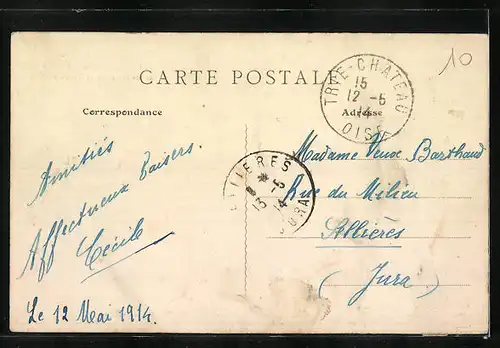 10
CARTE POSTALE
Correspondance
Adresse
TRIE-CHATEAU
15
12 -5
14
OISE
Amitiés
Affectueux baisers.
Cécile
Le 12 Mai 1914.
LLIERES
* -5
13 14
JURA
Madame Veuve Barthaud
Rue du Milieu
Sellières
(Jura)